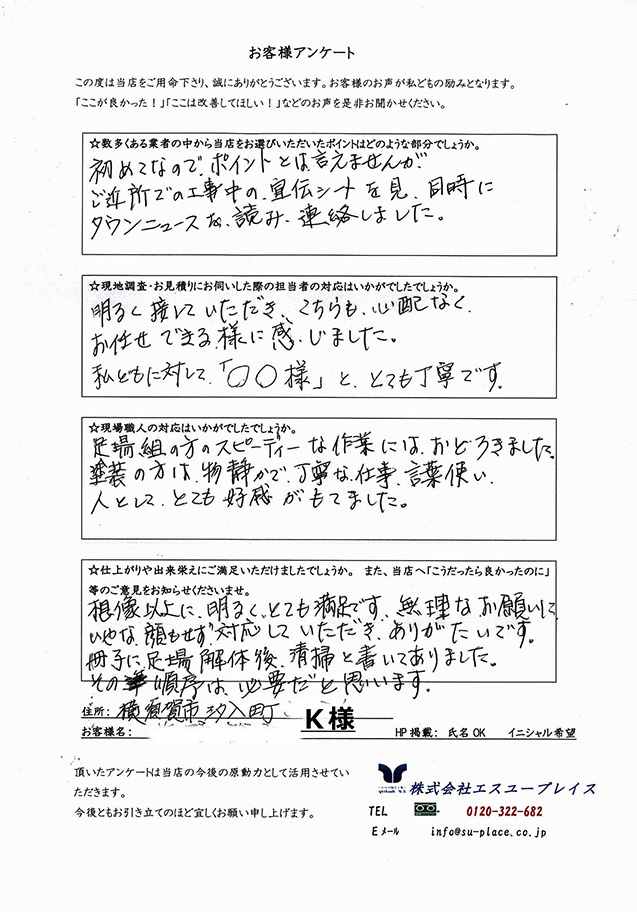 お客様アンケート
この度は当店をご用命下さり、誠にありがとうございます。お客様のお声が私どもの励みとなります。
「ここが良かった！」「ここは改善してほしい！」などのお声を是非お聞かせください。
☆数多くある業者の中から当店をお選びいただいたポイントはどのような部分でしょうか。
初めてなので、ポイントとは言えませんが
ご近所での工事中の、宣伝シートを見、同時に
タウンニュースを、読み、連絡しました。
☆現地調査・お見積りにお伺いした際の担当者の対応はいかがでしたでしょうか。
明るく接していただき、こちらも、心配なく、
お任せできる様に感じました。
私どもに対して、「〇〇様」と、とても丁寧です。
☆現場職人の対応はいかがでしたでしょうか。
足場組の方のスピーディーな作業には、おどろきました。
塗装の方は、物静かで、丁寧な、仕事、言葉使い、
人として、とても好感がもてました。
☆仕上がりや出来栄えにご満足いただけましたでしょうか。 また、当店へ「こうだったら良かったのに」
等のご意見をお知らせくださいませ。
想像以上に、明るく、とても満足です。無理なお願いにも、
いやな、顔もせず対応していただき、ありがたいです。
冊子に、足場解体後、清掃と書いてありました。
その順序は、必要だと思います。
住所： 横須賀市汐入町
お客様名： K様 HP掲載： 氏名OK イニシャル希望
頂いたアンケートは当店の今後の原動力として活用させてい
ただきます。
今後ともお引き立てのほど宜しくお願い申し上げます。
株式会社エスユープレイス
TEL 0120-322-682
Eメール info@su-place.co.jp